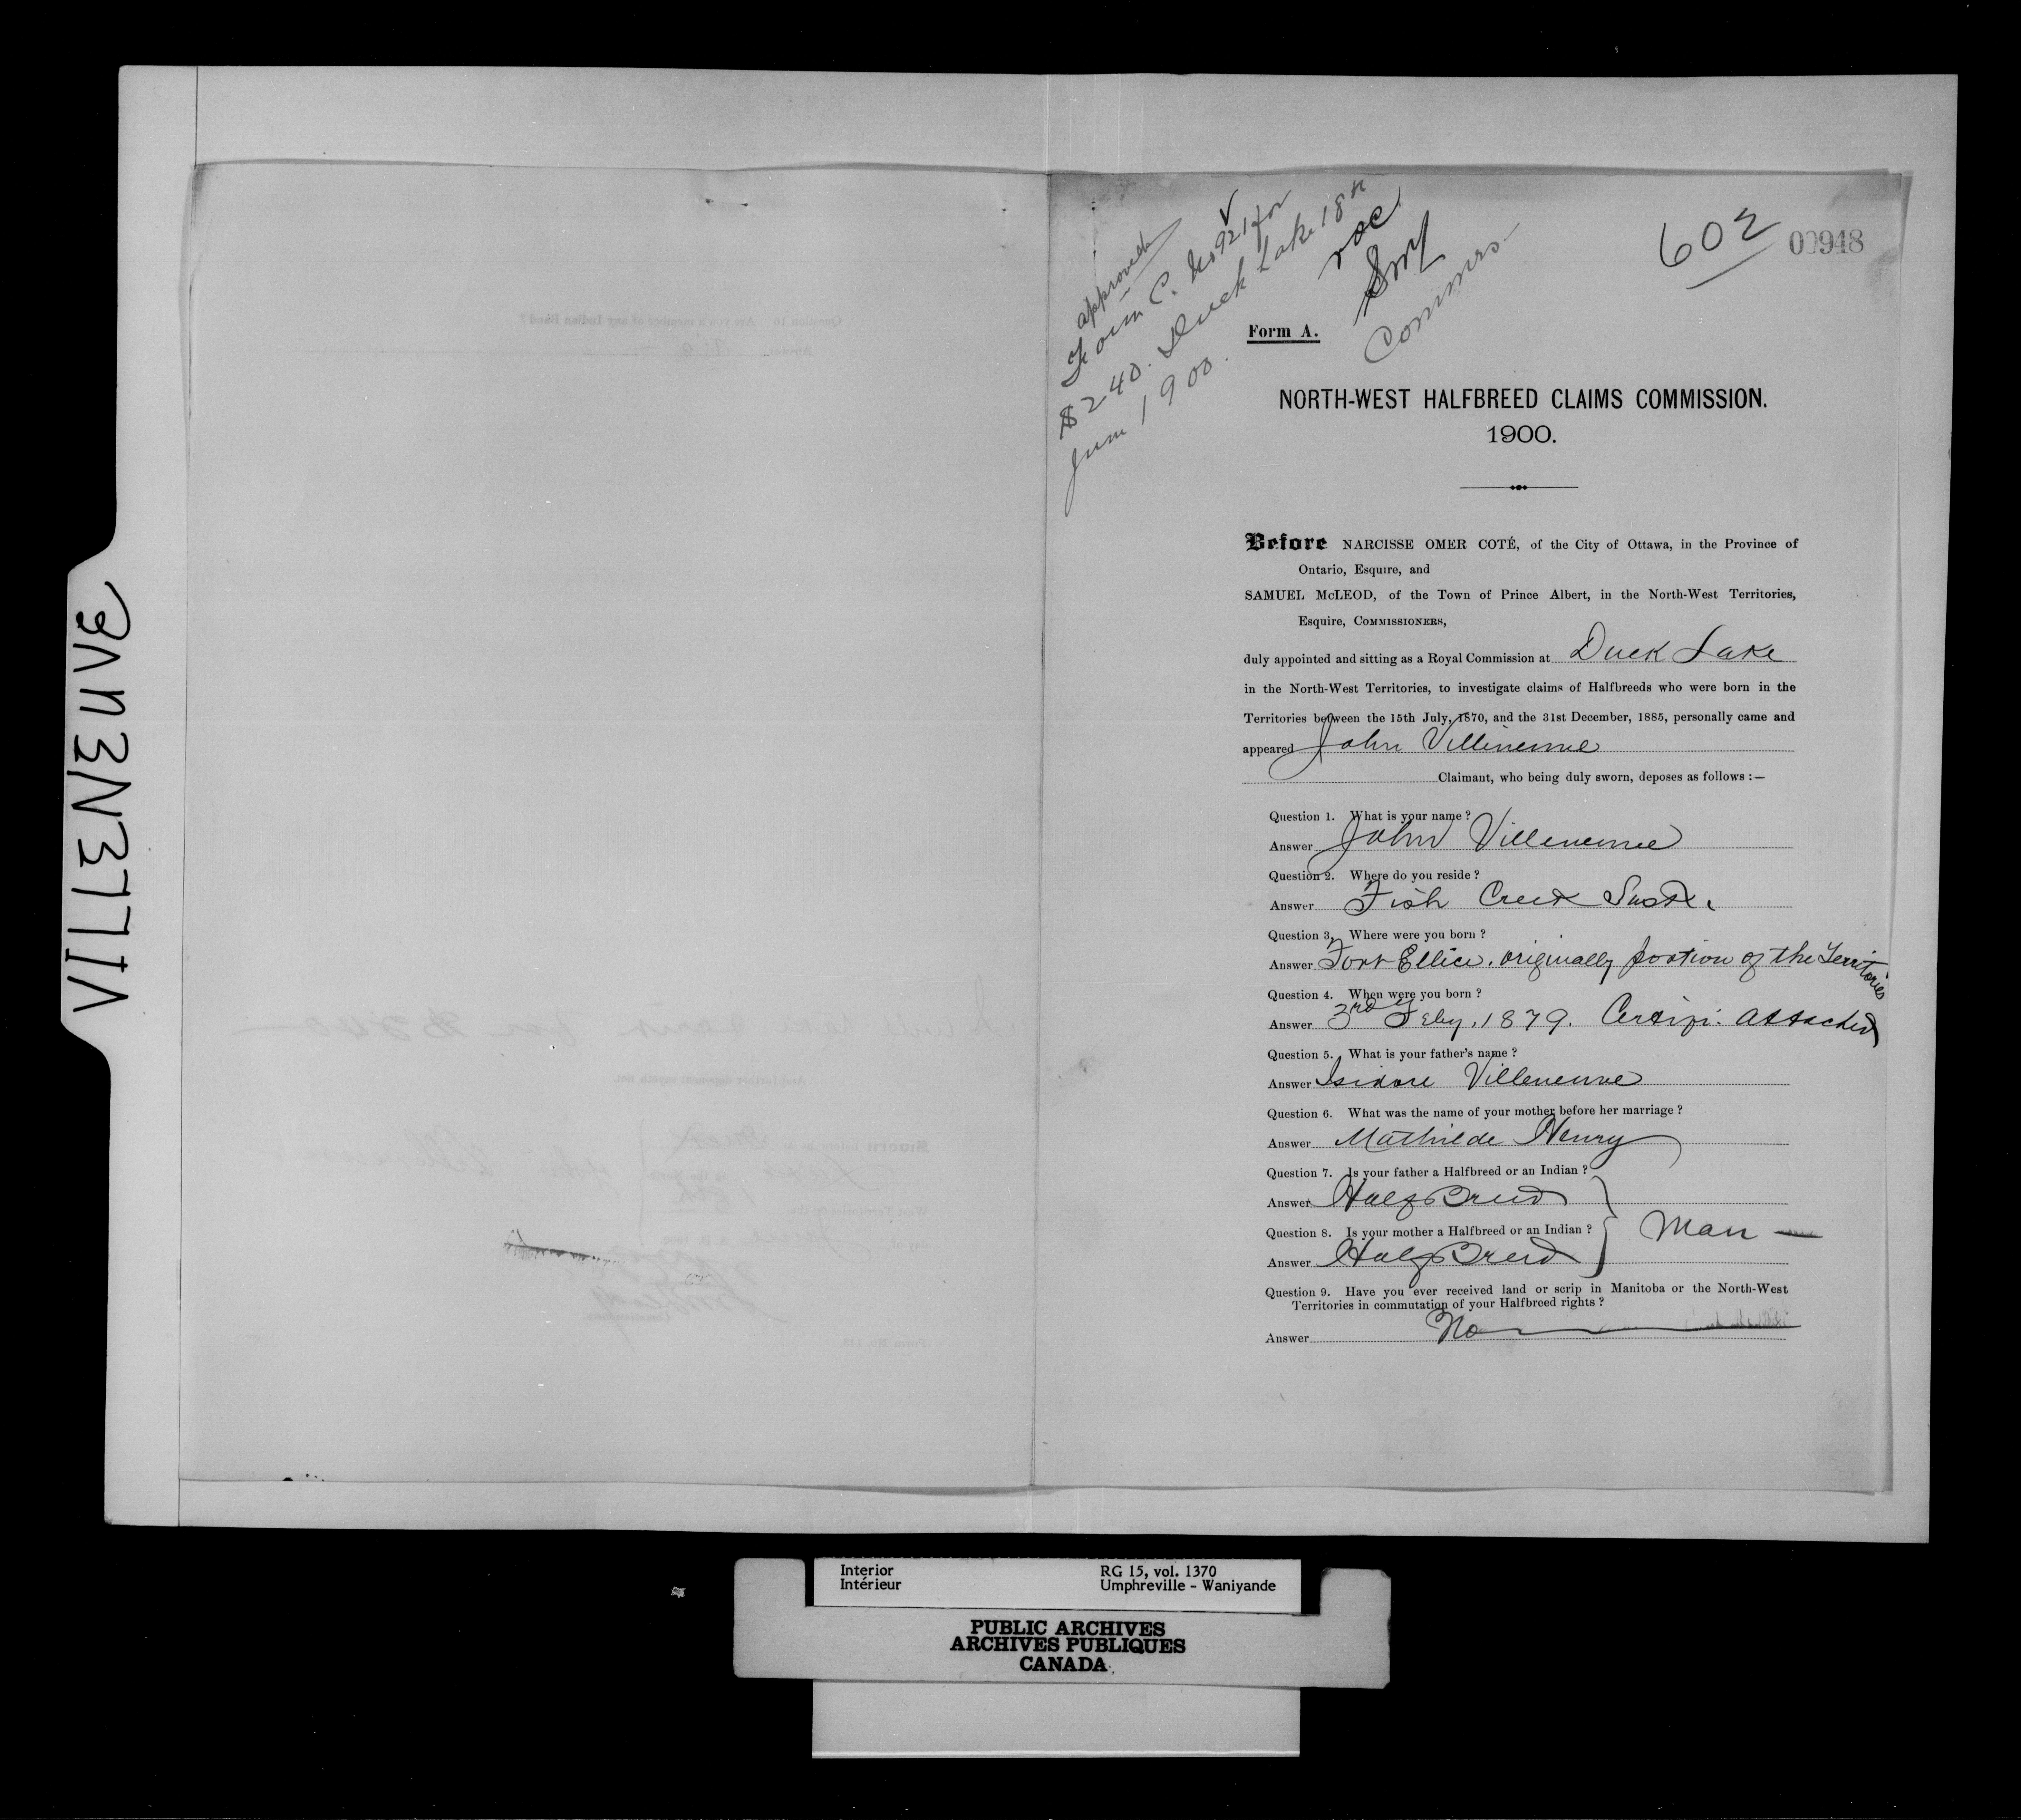 VILLENEUVE
approved
Form C. No 921 for
$240. Duck Lake 18th
June 1900.
NOC
SMcL
Commrs
602
00948
Form A.
NORTH-WEST HALFBREED CLAIMS COMMISSION.
1900.
Before NARCISSE OMER COTÉ, of the City of Ottawa, in the Province of
Ontario, Esquire, and
SAMUEL McLEOD, of the Town of Prince Albert, in the North-West Territories,
Esquire, COMMISSIONERS,
duly appointed and sitting as a Royal Commission at Duck Lake
in the North-West Territories, to investigate claims of Halfbreeds who were born in the
Territories between the 15th July, 1870, and the 31st December, 1885, personally came and
appeared John Villeneuve
Claimant, who being duly sworn, deposes as follows :—
Question 1. What is your name ?
Answer John Villeneuve
Question 2. Where do you reside ?
Answer Fish Creek Sask.
Question 3. Where were you born ?
Answer Fort Ellice. originally portion of the Territories
Question 4. When were you born ?
Answer 3rd Feby. 1879. Certifi. attached
Question 5. What is your father's name ?
Answer Isidore Villeneuve
Question 6. What was the name of your mother before her marriage ?
Answer Mathilde Henry
Question 7. Is your father a Halfbreed or an Indian ?
Answer HalfBreed
Question 8. Is your mother a Halfbreed or an Indian ? Man
Answer HalfBreed
Question 9. Have you ever received land or scrip in Manitoba or the North-West
Territories in commutation of your Halfbreed rights ?
Answer No
Interior RG 15, vol. 1370
Intérieur Umphreville - Waniyande
PUBLIC ARCHIVES
ARCHIVES PUBLIQUES
CANADA